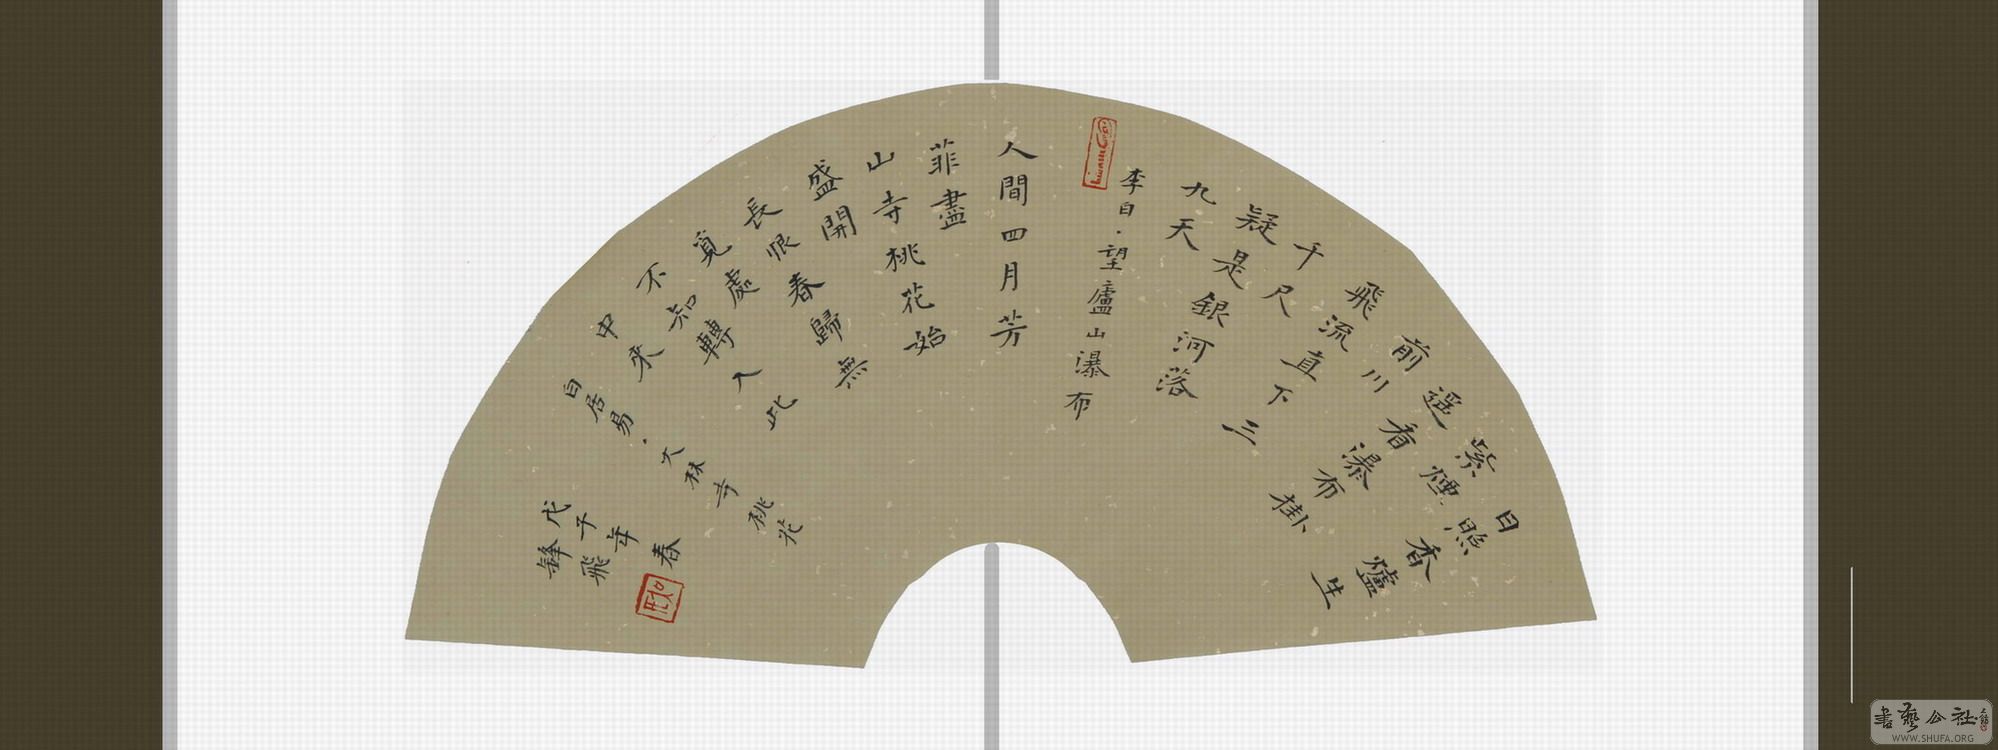 日照香爐生
紫煙
遥看瀑布掛
前川
飛流直下三
千尺
疑是銀河落
九天
李白·望廬山瀑布
人間四月芳
菲盡
山寺桃花始
盛開
長恨春歸無
覓處
不知轉入此
中來
白居易·大林寺桃花
戊子年春
鋒飛
書藝公社
WWW.SHUFA.ORG